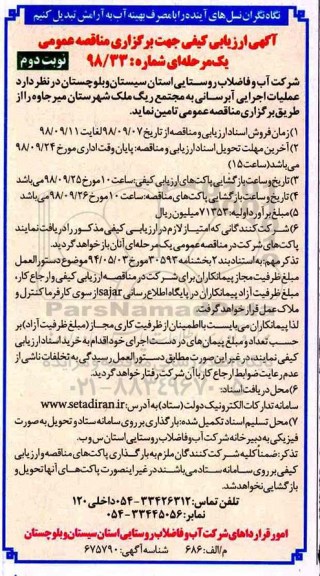 نگاه نگران نسل‌های آینده را با مصرف بهینه آب به آرامش تبدیل کنیم
آگهی ارزیابی کیفی جهت برگزاری مناقصه عمومی
یک مرحله‌ای شماره: ۹۸/۳۳
نوبت دوم
شرکت آب و فاضلاب روستایی استان سیستان و بلوچستان در نظر دارد
عملیات اجرایی آبرسانی به مجتمع ریگ ملک شهرستان میرجاوه را از
طریق برگزاری مناقصه عمومی تامین نماید.
۱) زمان فروش اسناد ارزیابی و مناقصه از تاریخ ۹۸/۰۹/۰۷ لغایت ۹۸/۰۹/۱۱
۲) آخرین مهلت تحویل اسناد ارزیابی و مناقصه: پایان وقت اداری مورخ ۹۸/۰۹/۲۴
می‌باشد (ساعت ۱۵)
۳) تاریخ و ساعت بازگشایی پاکت‌های ارزیابی کیفی: ساعت ۱۰ مورخ ۹۸/۰۹/۲۵ می‌باشد
۴) تاریخ و ساعت بازگشایی پاکت‌های مناقصه: ساعت ۱۰ مورخ ۹۸/۰۹/۲۶ می‌باشد
۵) مبلغ برآورد اولیه: ۷۱۳۵۳ میلیون ریال
۶) شرکت کنندگانی که امتیاز لازم در ارزیابی کیفی مذکور را دریافت نمایند
پاکت‌های شرکت در مناقصه عمومی یک مرحله‌ای آنان باز خواهد گردید.
تذکر مهم: به استناد بند ۲ بخشنامه ۳۰۵۹۳ مورخ ۹۴/۰۵/۰۳ موضوع دستورالعمل
مبلغ ظرفیت مجاز پیمانکاران برای شرکت در مناقصه/ ارزیابی کیفی و ارجاع کار،
مبلغ ظرفیت آزاد پیمانکاران در پایگاه اطلاع رسانی sajar از سوی کارفرما کنترل و
ملاک عمل قرار خواهد گرفت.
لذا پیمانکاران می‌بایست با اطمینان از ظرفیت کاری مجاز (مبلغ ظرفیت آزاد) بر
حسب تعداد و مبلغ پیمان‌های در دست اجرای خود اقدام به خرید اسناد ارزیابی
کیفی نمایند، در غیر این صورت مطابق دستورالعمل رسیدگی به تخلفات ناشی از
عدم رعایت ضوابط ارجاع کار با آن شرکت رفتار خواهد گردید.
۶) محل دریافت اسناد:
سامانه تدارکات الکترونیک دولت (ستاد) به آدرس: www.setadiran.ir
۷) محل تسلیم اسناد تکمیل شده: بارگذاری بر روی سامانه ستاد و تحویل به صورت
فیزیکی به دبیرخانه شرکت آب و فاضلاب روستایی استان س‌وب.
تذکر: ضمنا کلیه شرکت کنندگان ملزم به بارگذاری پاکت‌های مناقصه و ارزیابی
کیفی بر روی سامانه ستاد می‌باشند در غیر اینصورت پاکت‌های آنها تحویل و
بازگشایی نخواهد شد.
تلفن تماس: ۳۳۴۲۶۳۱۲-۰۵۴ داخلی ۱۲۰
نمابر: ۳۳۴۴۵۰۵۶-۰۵۴
امور قراردادهای شرکت آب و فاضلاب روستایی استان سیستان و بلوچستان
م/الف: ۶۸۶ شناسه آگهی: ۶۷۵۷۹۰